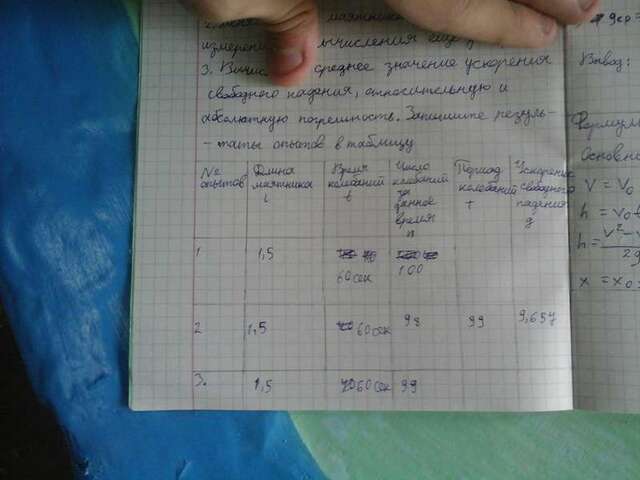 2.
маятника
измерения вычисления ещё
3. среднее значение ускорения
свободного падения, относительную и
абсолютную погрешность. Запишите резуль-
- таты опытов в таблицу
№ опытов Длина маятника l Время колебаний t Число колебаний за данное время n Период колебаний T Ускорение свободного падения g
1 1,5 60 сек 100
2 1,5 60 сек 98 99 9,657
3. 1,5 60 сек 99
gср =
Вывод:
Формулы
Основн
V = V₀
h = V₀t
h = V² - V
2g
x = x₀